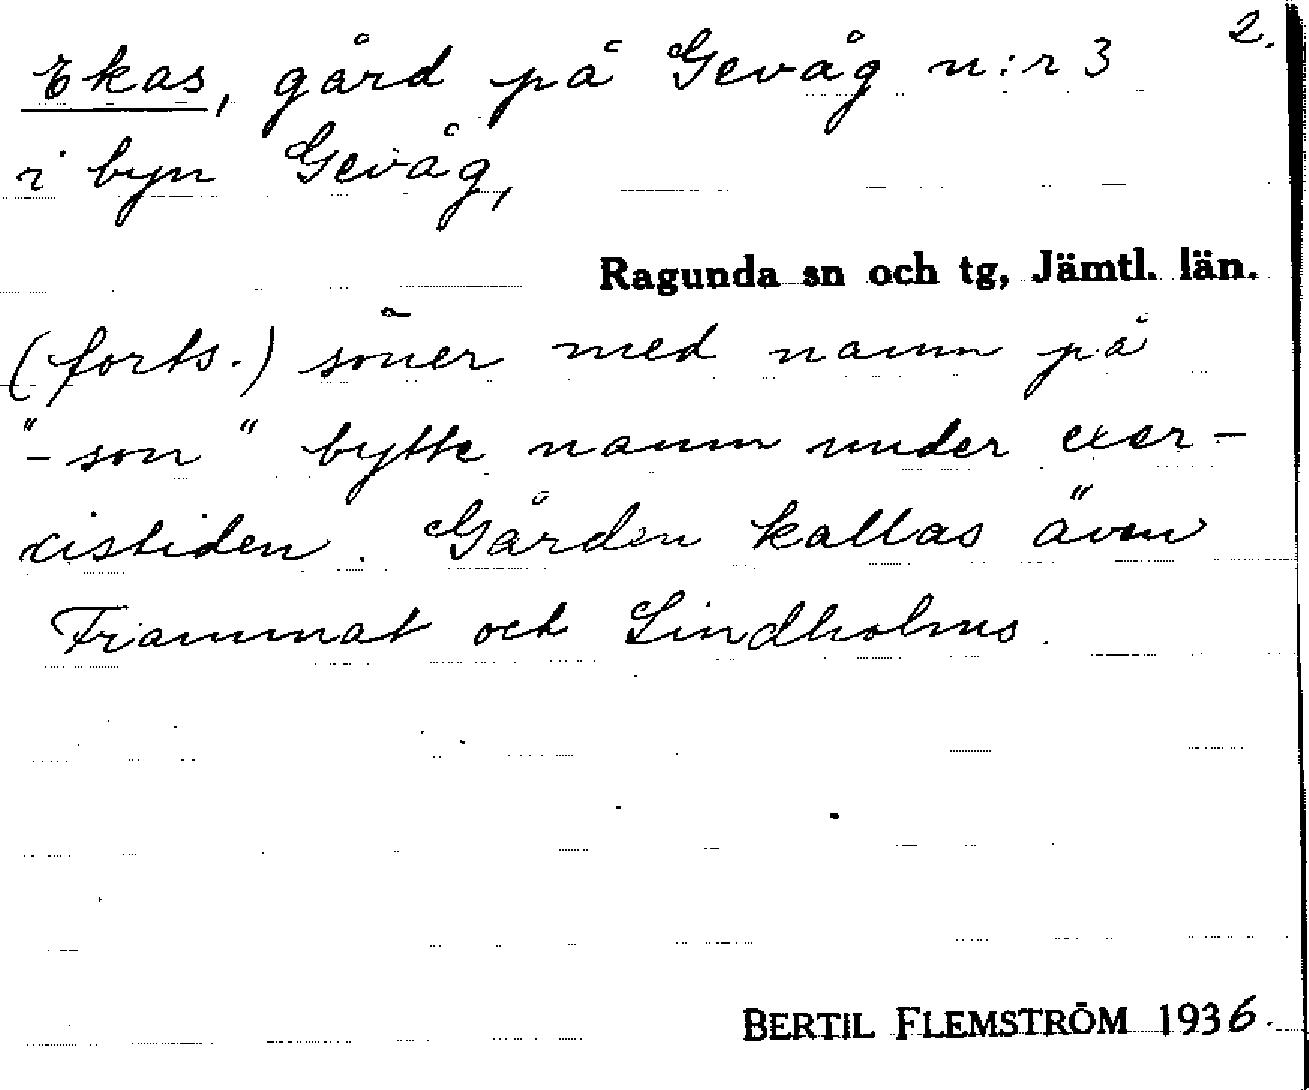 2.
Ekas, gård på Gevåg n:r 3
i byn Gevåg,
Ragunda sn och tg, Jämtl. län.
(forts.) söner med namn på
"-son" bytte namn under exer-
cistiden. Gården kallas även
Frammat och Lindholms.
BERTIL FLEMSTRÖM 1936.